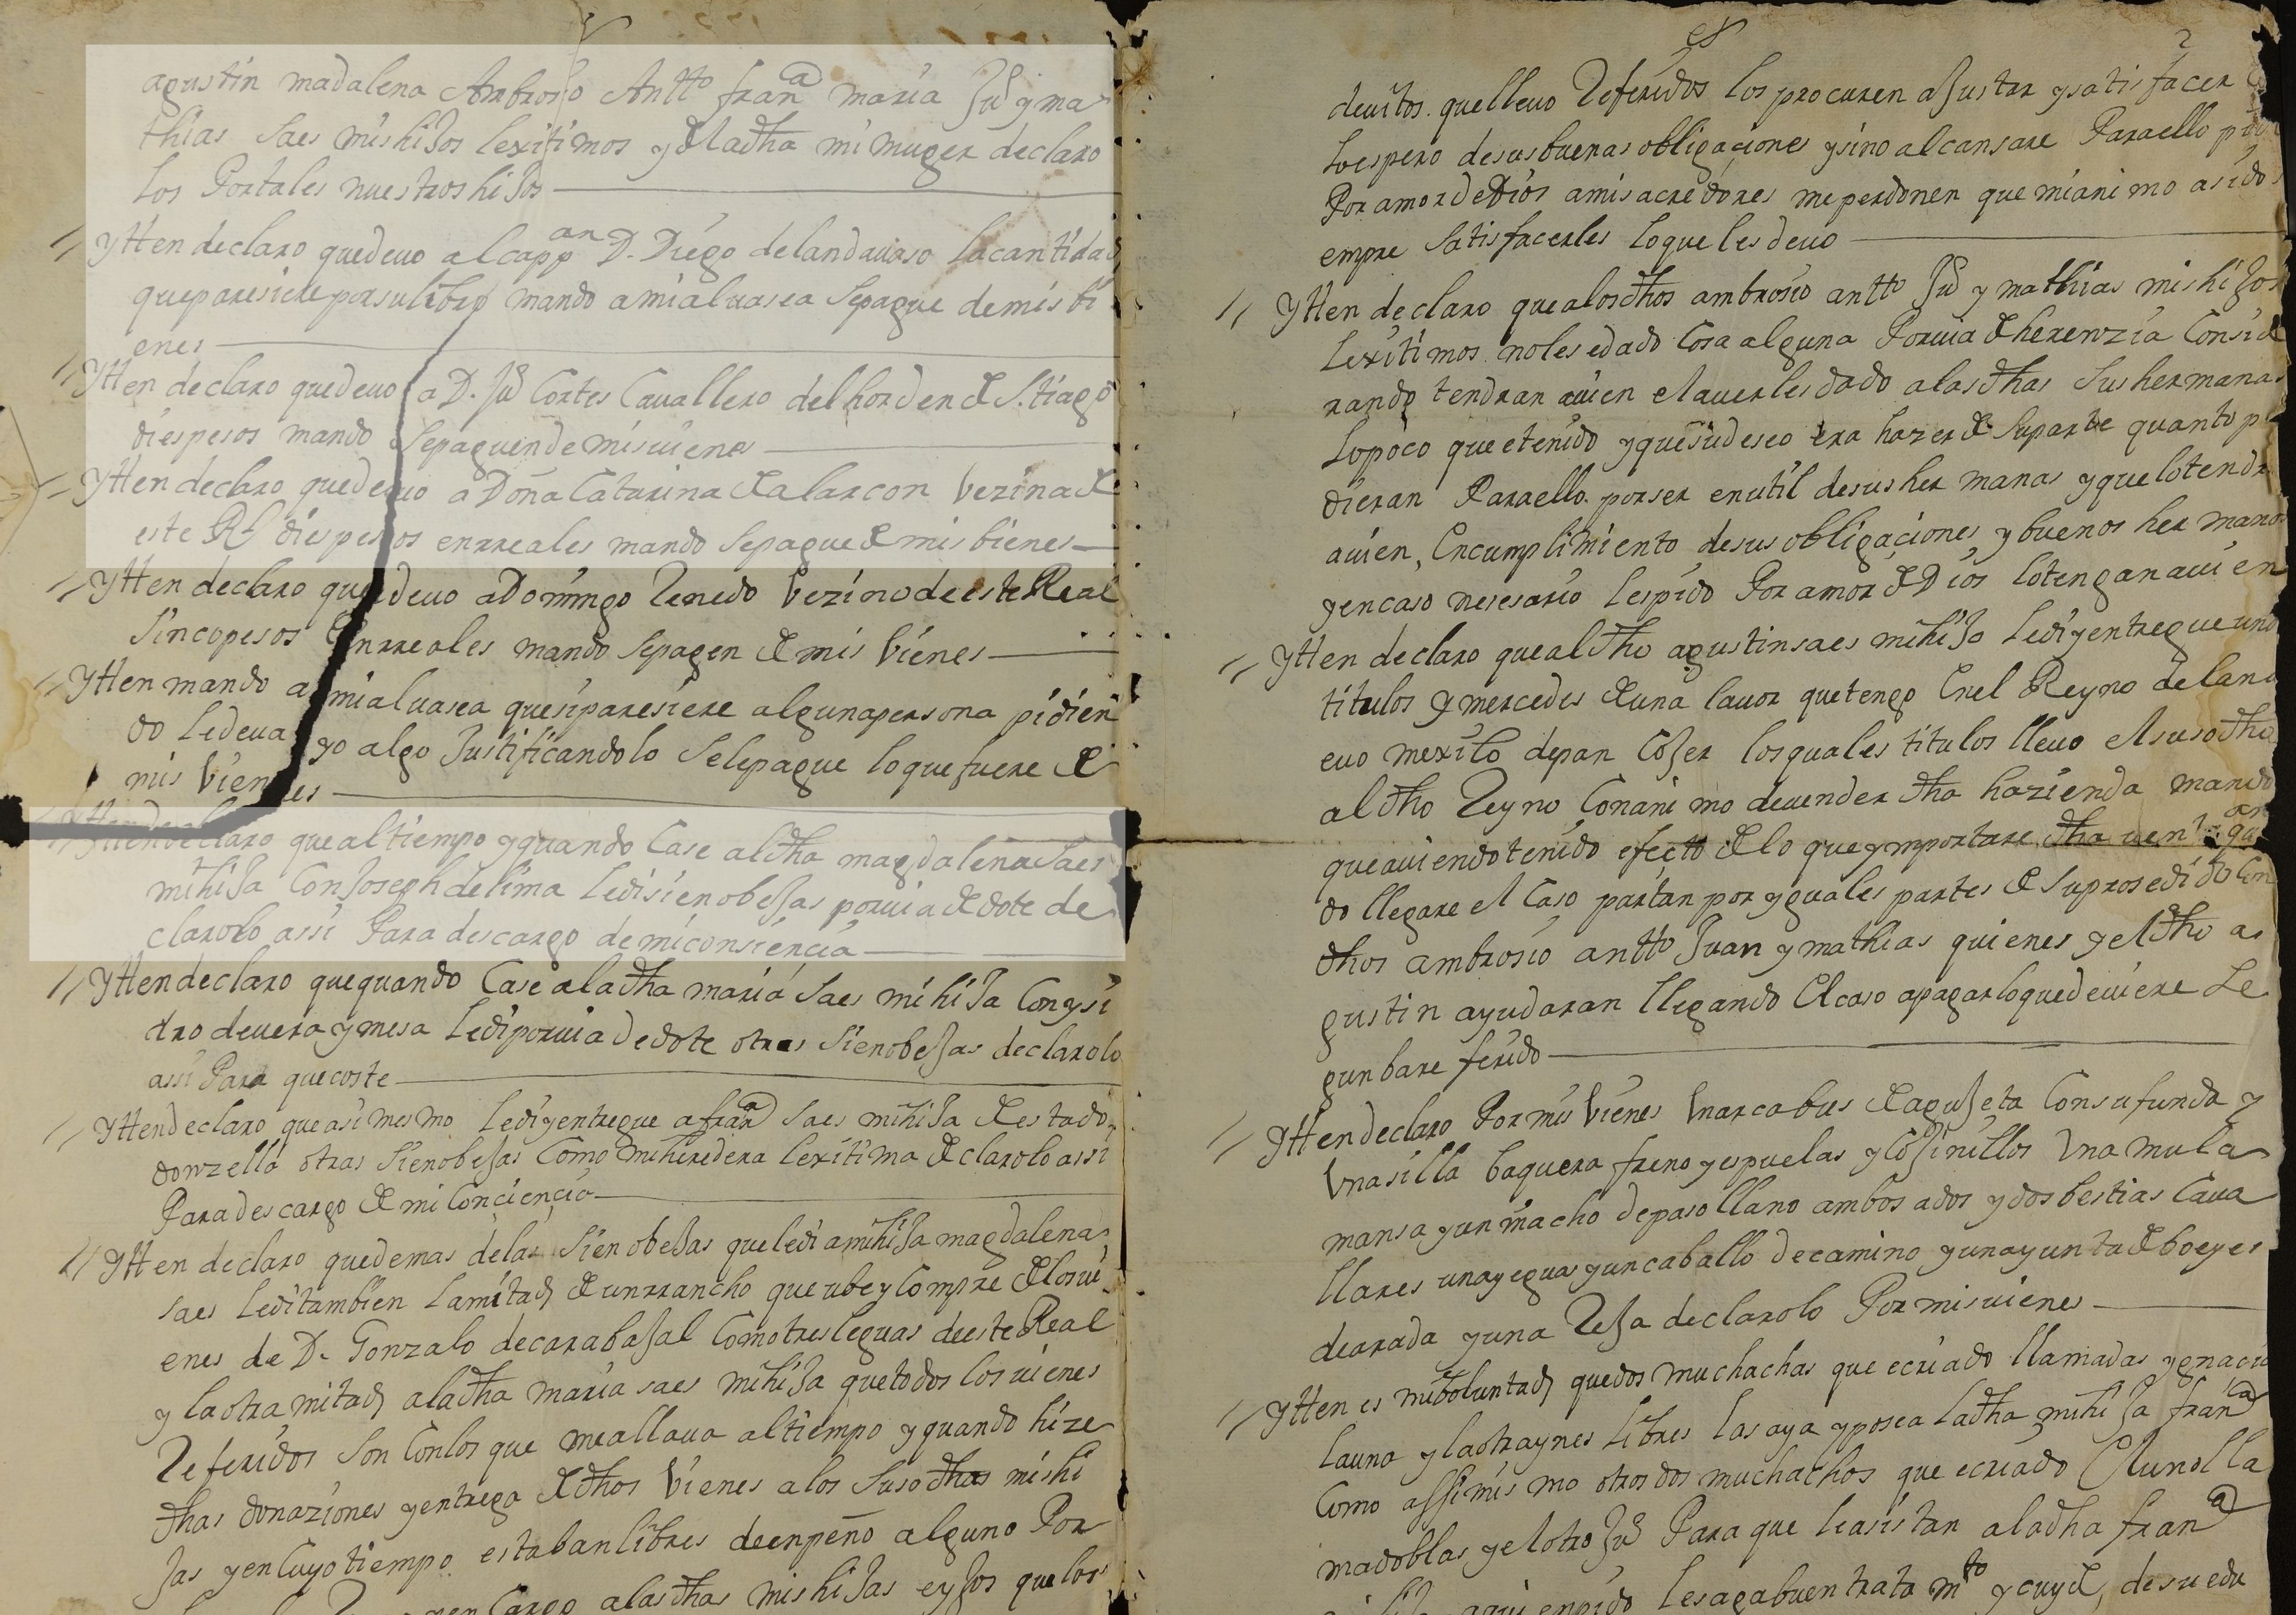 agustin madalena Ambrosio Antto franca maria Juo y ma
thias saes mis hijos lexitimos y de la dha mi muger declaro
los Por tales nuestros hijos
Ytten declaro que deuo al cappan D. Diego de landauaso la cantidad
que paresiere por su libro mando a mi aluasea se pague de mis bi
enes
Ytten declaro que deuo a D. Juo Cortes Cauallero del horden de S.tiago
dies pesos mando se paguen de mis uienes
Ytten declaro que deuo a Doña Catarina de alarcon Vezina de
este Rl dies pesos en rreales mando se pague de mis bienes
Ytten declaro que deuo a Domingo Renedo Vezino de este Real
sinco pesos en rreales mando se pagen de mis Vienes
Ytten mando a mi aluasea que si paresiere alguna persona pidien
do le deua yo algo Justificandolo se le pague lo que fuere de
mis Vienes
Ytten declaro que al tiempo y quando Case a la dha magdalena saes
mi hija Con Joseph de lima le di sien obejas por uia de dote de
clarolo assi Para descargo de mi consiencia
Ytten declaro que quando Case a la dha maria saes mi hija Con ysi
dro de uera y mesa le di por uia de dote otras sien obejas declarolo
assi Para que coste
Ytten declaro que asi mesmo le di y entregue a franca saes mi hija de estado
donzella otras sien obejas Como mi heredera lexitima declarolo assi
Para descargo de mi Conciencia
Ytten declaro que demas de las sien obejas que le di a mi hija magdalena
saes le di tambien la mitad de un rrancho que ube y Compre de los ui
enes de D. Gonzalo de carabajal Como tres leguas de este Real
y la otra mitad a la dha maria saes mi hija que todos los uienes
Referidos son Con los que me allaua al tiempo y quando hize
dhas donaziones y entrega de dhos Vienes a los suso dhas mis hi
jas y en Cuyo tiempo estaban libres de enpeño alguno Por
en Cargo a las dhas mis hijas e yjos que los
2
deuitos que lleuo Referidos los procuren ajustar y satisfacer
lo espero de sus buenas obligaciones y si no alcansare Para ello
Por amor de Dios a mis acredores me perdonen que mi animo a sido
empre satisfacerles lo que les deuo
Ytten declaro que a los dhos ambrosio antto Juo y mathias mis hijos
Lexitimos no les e dado Cosa alguna Por uia de herenzia Conside
rando tendran a uien el auerles dado a las dhas sus hermanas
lo poco que e tenido y que su deseo era hazer de su parte quanto pu
dieran Para ello por ser en util de sus hermanas y que lo tendr
a uien, En cumplimiento de sus obligaciones y buenos hermanos
y en caso nesesario les pido Por amor de Dios lo tengan a uien
Ytten declaro que al dho agustin saes mi hijo le di y entregue uno
titulos y mercedes de una lauor que tengo En el Reyno de la nu
euo mexico de pan Cojer los quales titulos lleuo el suso dho
al dho Reyno Con animo de uender dha hazienda mando
que auiendo tenido efecto de lo que ymportare dha uen
do llegare el Caso partan por yguales partes de su prosedido Con
dhos ambrosio antto Juan y mathias quienes y el dho a
gustin ayudaran llegando El caso a pagar lo que deuiere se
gun ba referido
Ytten declaro Por mis Vienes Un arcabus de agujeta Con su funda y
Una silla baquera freno y espuelas y Cojinillos Una mula
mansa y un macho de paso llano ambos ados y dos bestias Caua
llares una yegua y un caballo de camino y una yunta de boeyes
de arada y una Reja declarolo Por mis uienes
Ytten es mi boluntad que dos muchachas que e criado llamadas ygnacia
la una y la otra ynes libres las aya y posea la dha mi hija franca
Como assimismo otros dos muchachos que e criado El uno lla
mado blas y el otro Juo Para que le asistan a la dha franca
a quien pido les aga buen tratamto y cuyde, de su edu